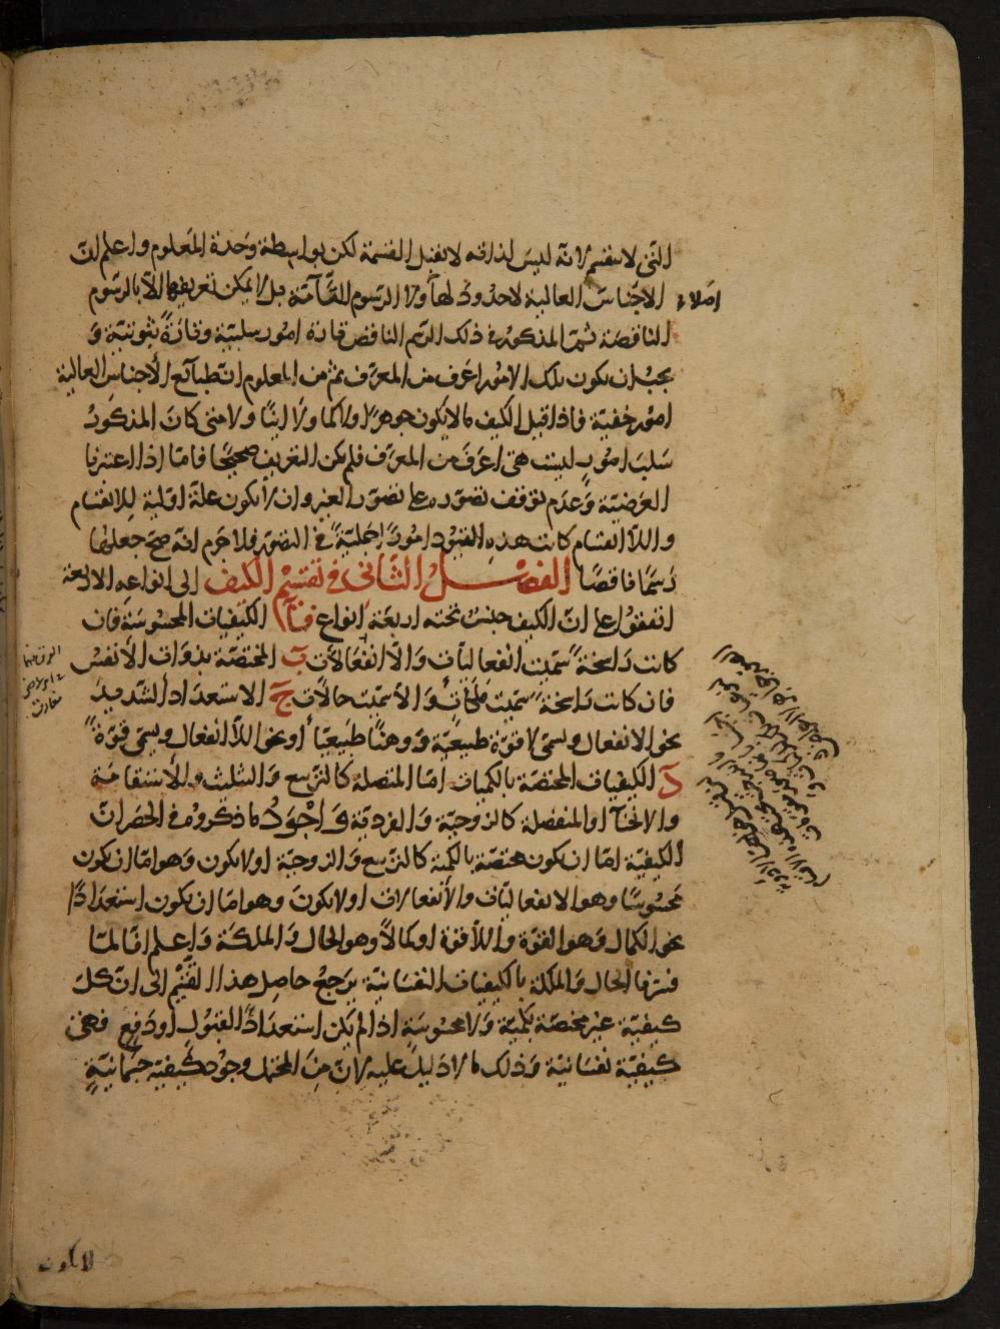 التى لا تنقسم لانه ليس لذاته لا يقبل القسمة لكن بواسطة وحدة المعلوم واعلم ان
الاجناس العالية لا حدود لها ولا الرسوم التامة بل لا يمكن تعريفها الا بالرسوم
اصلا
الناقصة ثم المذكور فى ذلك الرسم الناقص تارة امور سلبية وتارة ثبوتية و
يجب ان يكون تلك الامور اعرف من المعرف ثم من المعلوم ان طبائع الاجناس العالية
امور خفية فاذا قيل الكيف ما لا يكون جوهرا ولا كما ولا اينا ولا متى كان المذكور
سلب امور ليست هى اعرف من المعرف فلم يكن التعريف صحيحا فاما اذا اعتبرنا
العرضية وعدم توقف تصوره على تصور الغير وان لا يكون علة اولية للانقسام
واللاانقسام كانت هذه القيود امورا جلية فى التصور فلا جرم انه صح جعلها
رسما ناقصا الفصل الثانى فى تقسيم الكيف الى انواعه الاربعة
اتفقوا على ان الكيف جنس تحته اربعة انواع ا الكيفيات المحسوسة فان
كانت راسخة سميت انفعاليات والا انفعالات ب المختصة بذوات الانفس
فان كانت راسخة سميت ملكات والا سميت حالات ج الاستعداد الشديد
نحو الانفعال ويسمى لاقوة طبيعية ووهنا طبيعيا او نحو اللاانفعال ويسمى قوة
د الكيفيات المختصة بالكميات اما المتصلة كالتربيع والتثليث والاستقامة
والانحناء او المنفصلة كالزوجية والفردية واجود ما ذكروه فى الحصر ان
الكيفية اما ان يكون مختصة بالكمية كالتربيع والزوجية او لا يكون وهو اما ان يكون
محسوسا وهو الانفعاليات والانفعالات او لا يكون وهو اما ان يكون استعدادا
نحو الكمال وهو القوة واللاقوة او كمالا وهو الحال والملكة واعلم انا لما
فسرنا الحال والملكة بالكيفيات النفسانية يرجع حاصل هذا التقسيم الى ان كل
كيفية غير مختصة بكمية ولا محسوسة اذا لم يكن استعدادا لقبول او دفع فهى
كيفية نفسانية وذلك مما لا دليل عليه لان من المحتمل وجود كيفية جسمانية
لا يكون